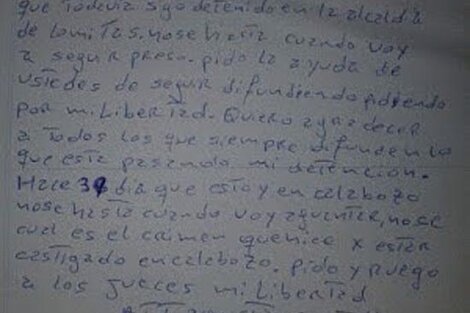 que Todavia sigo detenido en la alcaidia
de Lomitas, nose hasta cuando voy
a seguir preso. pido la ayuda de
ustedes de seguir difundiendo pidiendo
por mi Libertad. Quiero agradecer
a Todos los que siempre difunden lo
que esta pasando mi detencion.
Hace 39 dia que estoy en calabozo
nose hasta cuando voy aguantar, nose
cual es el crimen que hice x estar
castigado en calabozo. Pido y ruego
a los jueces mi Libertad